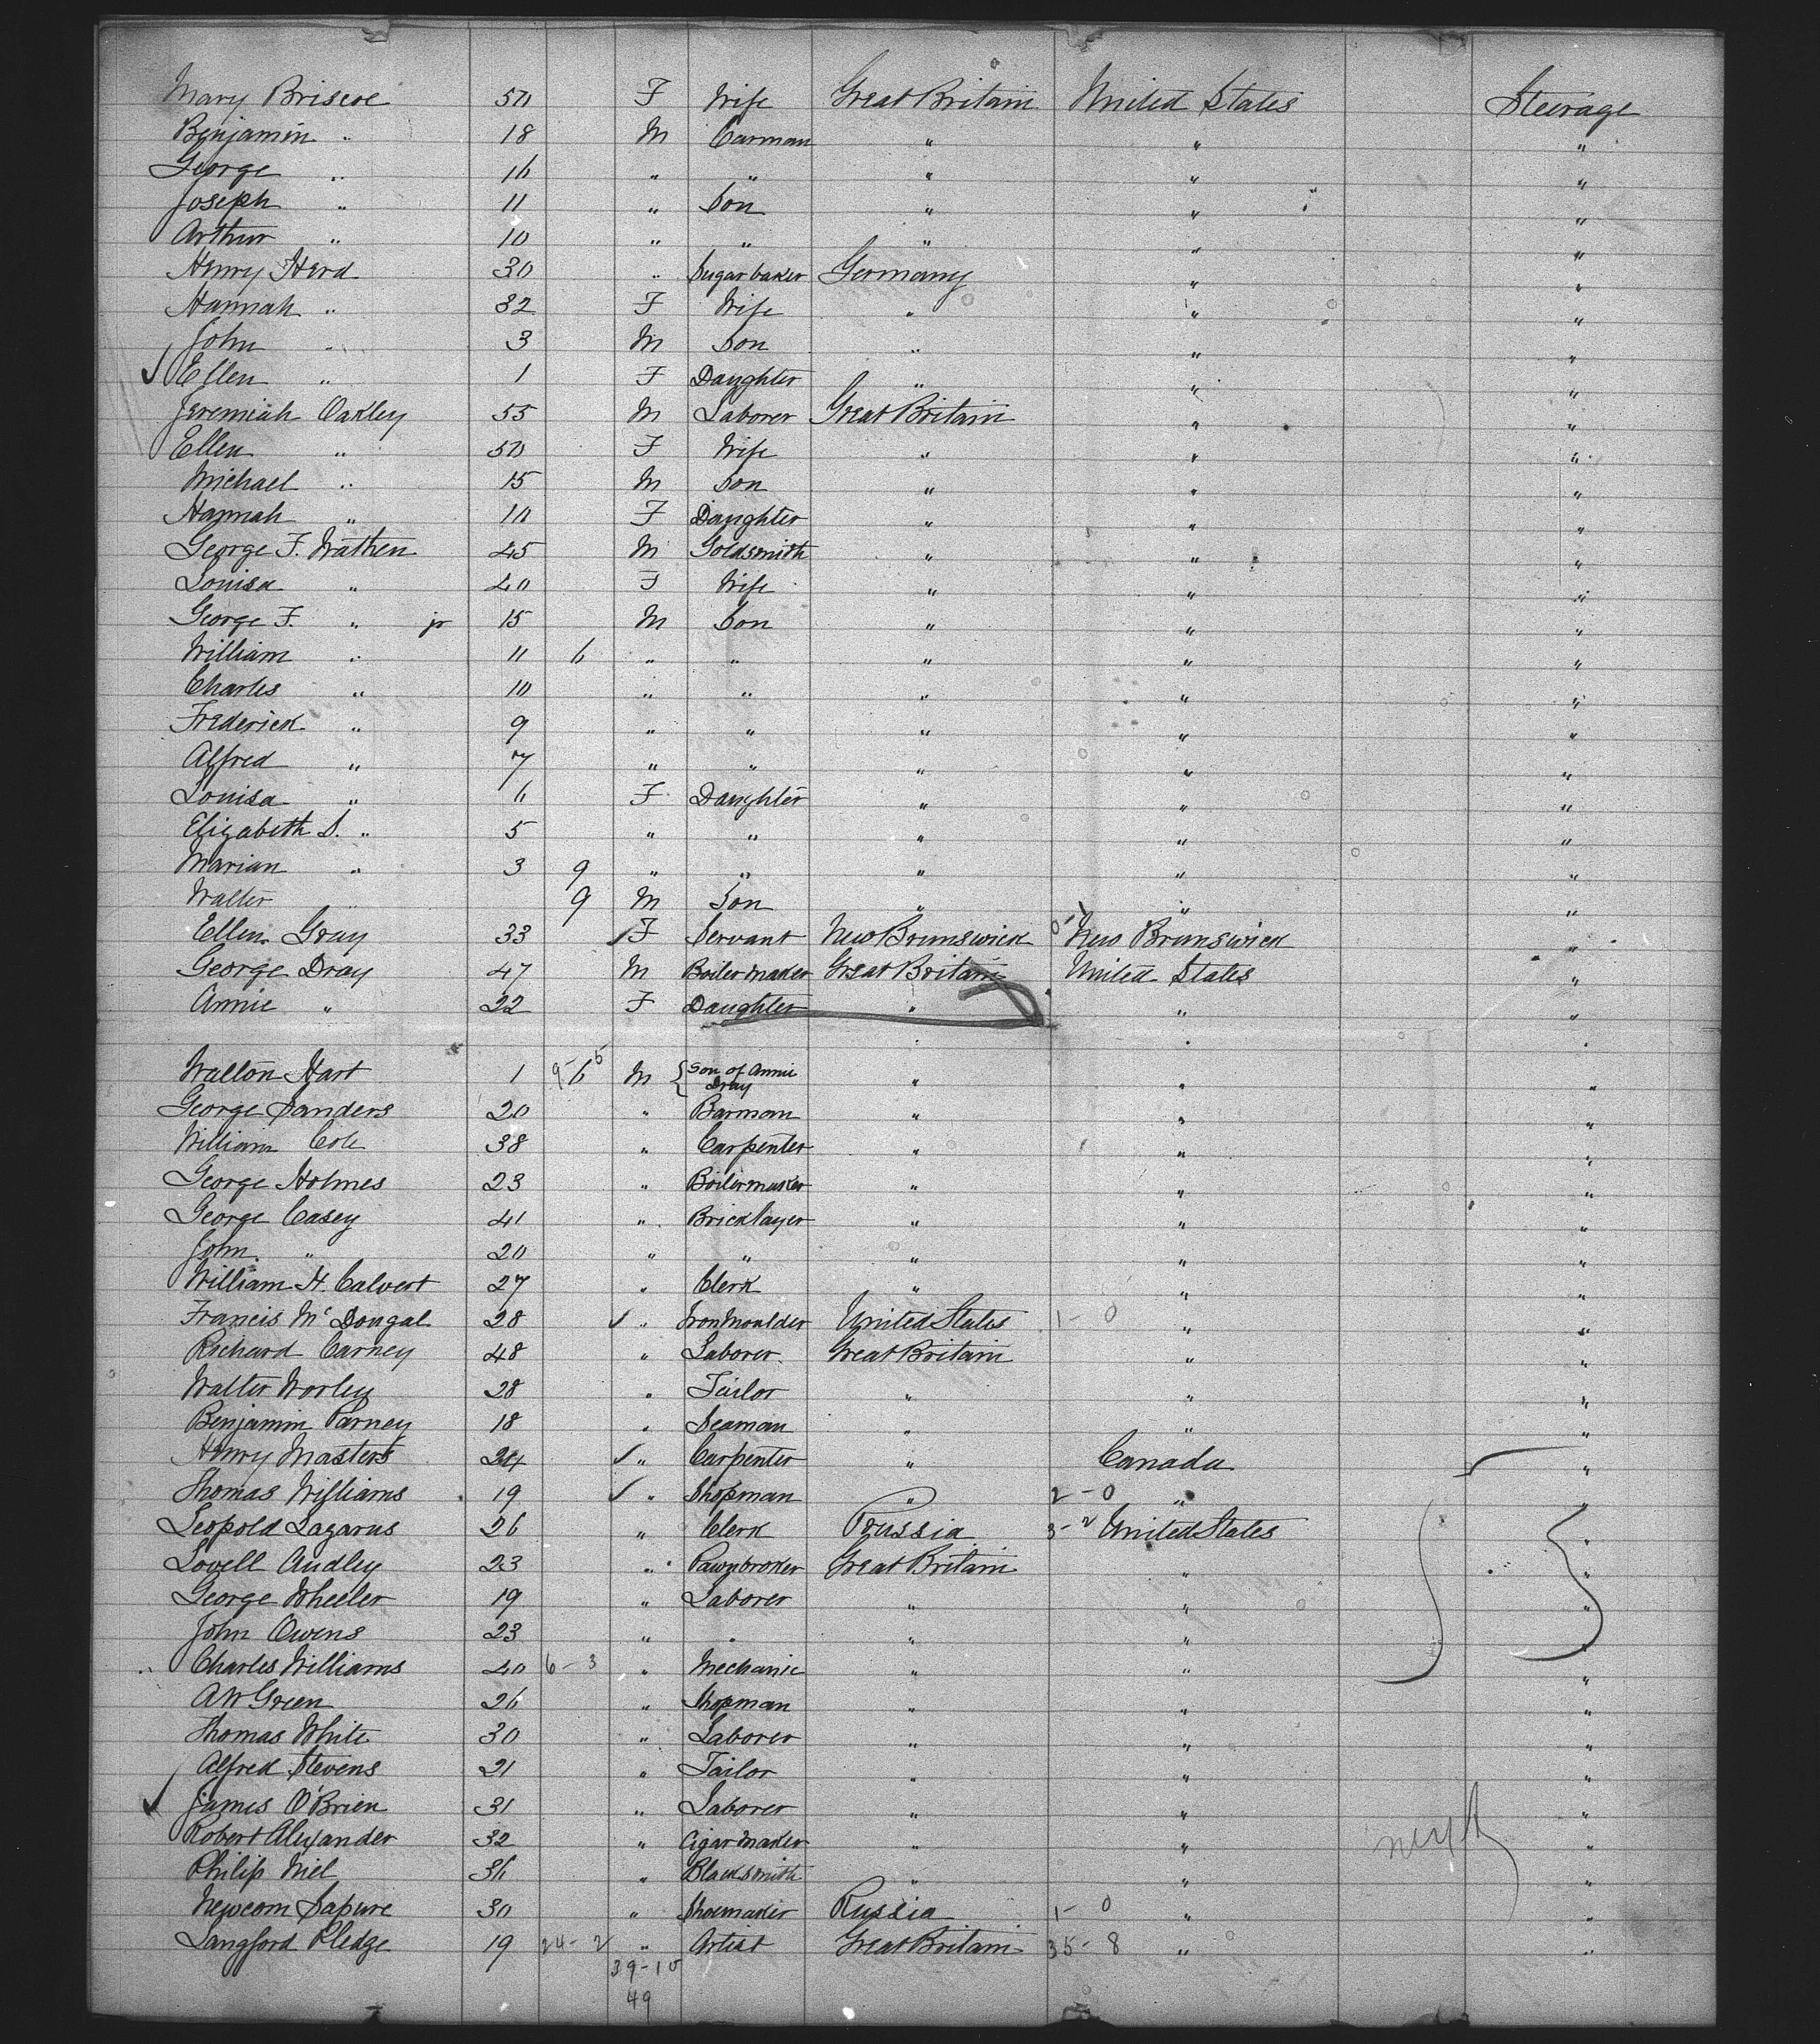 Mary Briscoe 50 F Wife Great Britain United States Steerage
Benjamin " 18 M Carman " " "
George " 16 " " " " "
Joseph " 11 " Son " " "
Arthur " 10 " " " " "
Henry Herd 30 " Sugar baker Germany " "
Hannah " 32 F Wife " " "
John " 3 M Son " " "
Ellen " 1 F Daughter " " "
Jeremiah Oakley 55 M Laborer Great Britain " "
Ellen " 50 F Wife " " "
Michael " 15 M Son " " "
Hannah " 10 F Daughter " " "
George F. Wathen 45 M Goldsmith " " "
Louisa " 40 F Wife " " "
George F. " jr 15 M Son " " "
William " 11 6 " " " " "
Charles " 10 " " " " "
Frederick " 9 " " " " "
Alfred " 7 " " " " "
Louisa " 6 F Daughter " " "
Elizabeth S. " 5 " " " " "
Marian " 3 9 " " " " "
Walter " 9 M Son " " "
Ellen Gray 33 F Servant New Brunswick 0-1 New Brunswick "
George Dray 47 M Boiler maker Great Britain United States "
Annie " 22 F Daughter " " "
Walton Hart 1 9-6 5 M Son of Annie Dray " " "
George Sanders 20 " Barman " " "
William Cole 38 " Carpenter " " "
George Holmes 23 " Boilermaker " " "
George Casey 41 " Bricklayer " " "
John " 20 " " " " "
William H. Calvert 27 " Clerk " " "
Francis McDougal 28 " Iron Moulder United States 1-0 " "
Richard Carney 48 " Laborer Great Britain " "
Walter Worley 28 " Tailor " " "
Benjamin Parney 18 " Seaman " " "
Henry Masters 24 " Carpenter " Canada "
Thomas Williams 19 " Shopman " 2-0 " "
Leopold Lazarus 26 " Clerk Prussia 3-2 United States "
Lovell Audley 23 " Pawnbroker Great Britain " "
George Wheeler 19 " Laborer " " "
John Owens 23 " " " " "
Charles Williams 40 6-3 " Mechanic " " "
A W Green 26 " Shopman " " "
Thomas White 30 " Laborer " " "
Alfred Stevens 21 " Tailor " " "
James O'Brien 31 " Laborer " " "
Robert Alexander 32 " Cigar Maker " " "
Philip Niel 36 " Blacksmith " " "
Newcom Sapure 30 " Shoemaker Russia 1-0 " "
Langford Pledge 19 24-2 " Artist Great Britain 35-8 " "
39-10
49